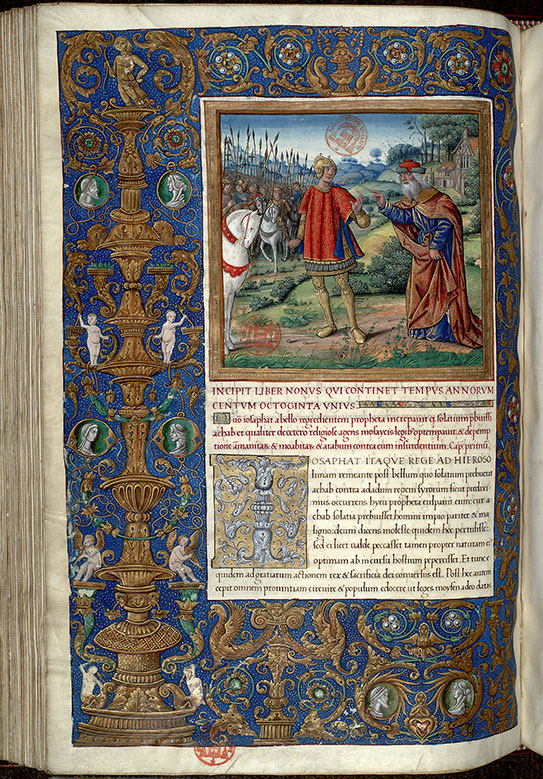 INCIPIT LIBER NONVS QVI CONTINET TEMPVS ANNORVM
CENTVM OCTOGINTA VNIVS.
Quō iosaphat a bello reuertentem propheta increpauit qͥ solatium
achab et qualiter de cetero legibꝰ
& moabitaꝝ & arabum contra eum insurdentium. Cap. primū.
IOSAPHAT ITAQVE REGE AD HIEROSO
limam remeante post bellum quo solatium prebuerat
achab contra adadum regem syrorum sicut predixi
mus occurrens hyeu propheta culpauit eum cur a
chab solatia prebuisset homini impio pariter & ma
ligno: deum dicens moleste quidem hoc pertulisse:
sed ei licet ualde peccasset tamen propter naturam eius
optimam ab incursu hostium pepercisset. Et tunc
quidem ad gratiarum actionem rex & sacrificia dei conuersus est. Post hec autem
cepit omnem prouintiam circuire & populum edocere ut leges moysen a deo datas